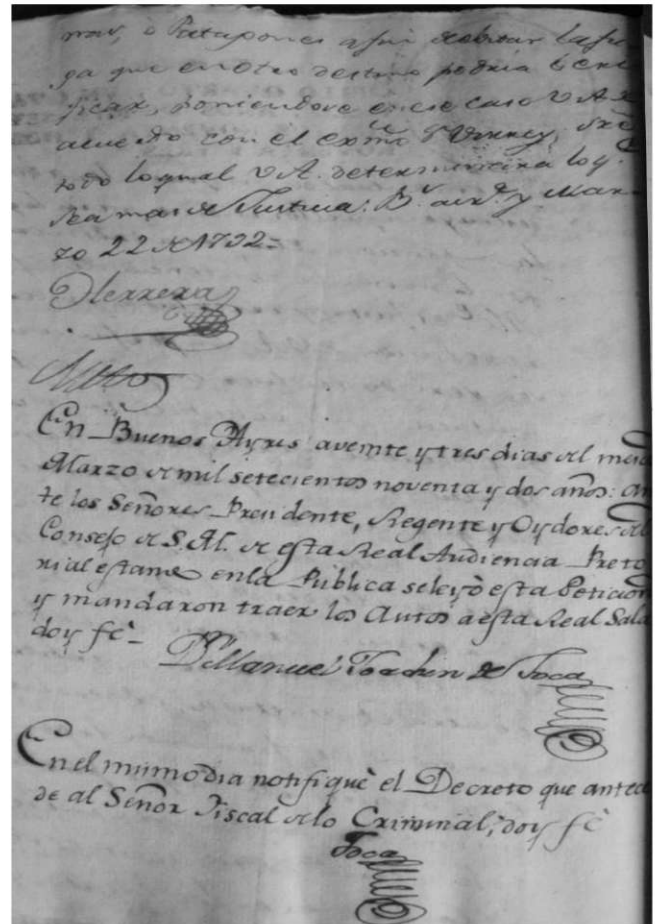 nas, ò Patagones a fin de evitar la fu-
ga que en otro destino podria veri-
ficar, poniendose en ese caso V.A. de
acuerdo con el exmo. Sr. Virrey, sre.
todo lo qual V.A. determinará lo q.
sea mas de Justicia. Bs. airs. y Mar-
zo 22 de 1792=
Herrera
Auto
En Buenos Ayres a veinte y tres dias del mes de
Marzo de mil setecientos noventa y dos años: an
te los Señores Presidente, Regente y Oydores del
Consejo de S.M. de esta Real Audiencia Preto
rial estando en la Publica se leyò esta Peticion
y mandaron traer los Autos a esta Real Sala
doy feè-
Dn. Manuel Joachin de Toca
En el mismo dia notifiquè el Decreto que antece
de al Señor Fiscal de lo Criminal; doy feè
Toca